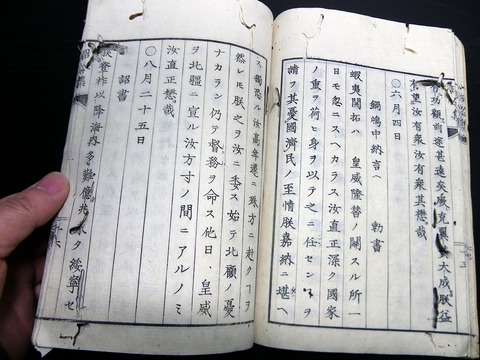 功顧前途甚遠矣庶克翼 大成朕益
有望汝有衆汝有衆其懋哉
○六月四日
鍋嶋中納言ヘ 勅書
蝦夷開拓ハ 皇威隆替ノ關スル所一
日モ忽ニスヘカラス汝直正深ク國家
ノ重ヲ荷ヒ身ヲ以テ之ニ任センヿヲ
請ヲ其憂國濟民ノ至情朕嘉納ニ堪ヘ
ス獨恐ル汝高年遠ニ殊方ニ赴クヿヲ
然レ𪜈朕之ヲ汝ニ委ス始テ北顧ノ憂
ナカラン仍テ督務ヲ命ス他日 皇威
ヲ北疆ニ宣ル汝方寸ノ間ニアルノミ
汝直正懋哉
○八月二十五日
詔書
朕登祚以降海内多難億兆未タ綏寧セ